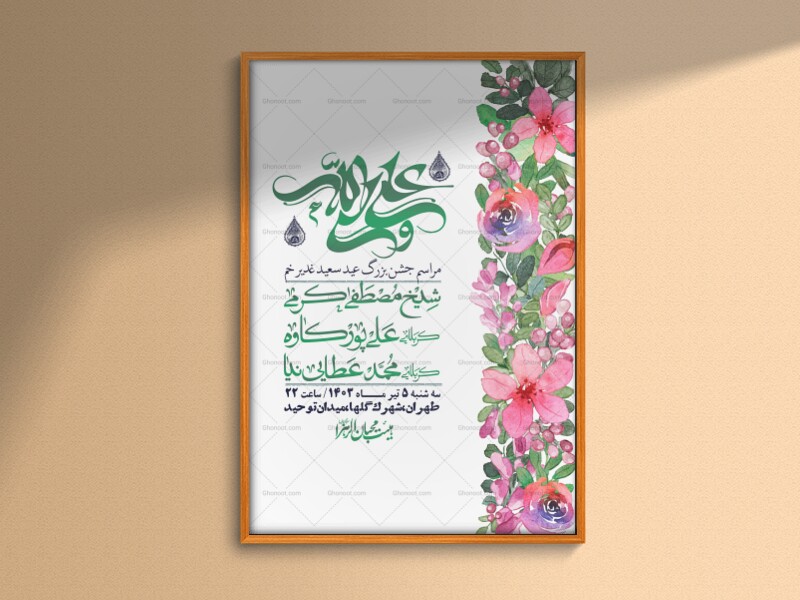 علی ولی الله
مراسم جشن بزرگ عید سعید غدیر خم
شیخ مصطفی کرمی
کربلایی علی پورکاوه
کربلایی محمد عطایی نیا
سه شنبه ۵ تیر مــاه ۱۴۰۳ / ساعت ۲۲
طهران،شهرک گلها،میدان توحید
هیئت محبان الزهرا
Ghonoot.com